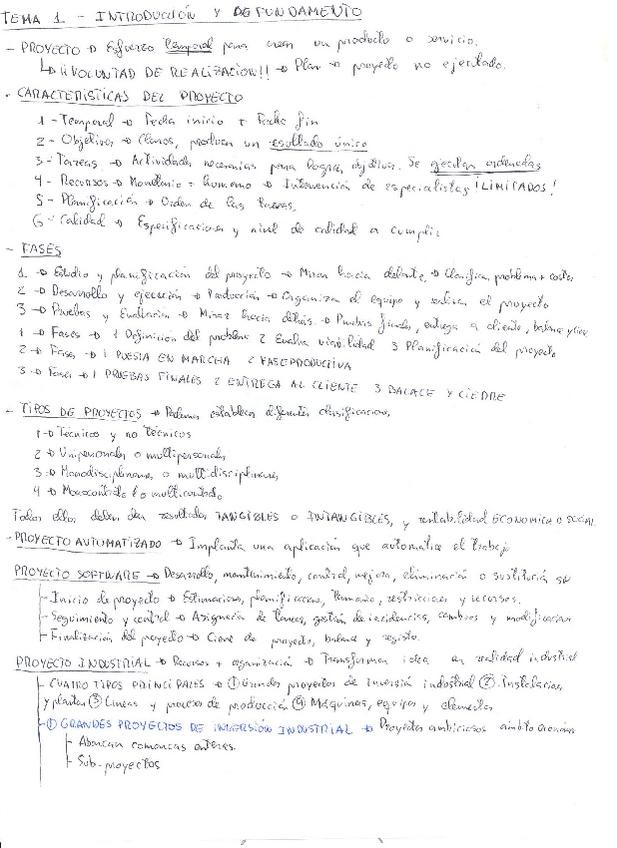 TEMA 1. - INTRODUCCIÓN Y DEFUNDAMENTO
- PROYECTO → Esfuerzo temporal para crear un producto o servicio.
↳ ¡¡VOLUNTAD DE REALIZACION!! → Plan → proyecto no ejecutado.
- CARACTERISTICAS DEL PROYECTO
1 - Temporal → Fecha inicio + Fecha fin
2 - Objetivos → Claros, producen un resultado único
3 - Tareas → Actividades necesarias para lograr objetivos. Se ejecutan ordenadas
4 - Recursos → Monetario + humano → Intervención de especialistas ¡LIMITADOS!
5 - Planificación → Orden de las tareas.
6 - Calidad → Especificaciones y nivel de calidad a cumplir
- FASES
1 → Estudio y planificación del proyecto → Mirar hacia delante → Clarifica problema + costes
2 → Desarrollo y ejecución → Producción → Organiza el equipo y realiza el proyecto
3 → Pruebas y Evaluación → Mirar hacia detrás → Pruebas finales, entrega a cliente, balance y cierre
1 → Fases → 1 Definición del problema 2 Evaluar viabilidad 3 Planificación del proyecto
2 → Fases → 1 PUESTA EN MARCHA 2 FASE PRODUCTIVA
3 → Fases → 1 PRUEBAS FINALES 2 ENTREGA AL CLIENTE 3 BALACE Y CIERRE
- TIPOS DE PROYECTOS → Podemos establecer diferentes clasificaciones
1 → Técnicos y no técnicos
2 → Unipersonales o multipersonales
3 → Monodisciplinares o multidisciplinares
4 → Monocontrato o multicontrato
Todos ellos deben dar resultados TANGIBLES o INTANGIBLES, y rentabilidad ECONOMICA O SOCIAL
- PROYECTO AUTOMATIZADO → Implanta una aplicación que automatice el trabajo
PROYECTO SOFTWARE → Desarrollo, mantenimiento, control, mejora, eliminación o sustitución sw
- Inicio de proyecto → Estimaciones, planificaciones, tamaño, restricciones y recursos.
- Seguimiento y control → Asignación de tareas, gestión de incidencias, cambios y modificaciones
- Finalización del proyecto → Cierre de proyecto, balance y registro.
PROYECTO INDUSTRIAL → Recursos + organización → Transforman idea en realidad industrial
- CUATRO TIPOS PRINCIPALES → ① Grandes proyectos de inversión industrial ② Instalaciones
y plantas ③ Lineas y procesos de producción ④ Máquinas, equipos y elementos
- ① GRANDES PROYECTOS DE INVERSIÓN INDUSTRIAL → Proyectos ambiciosos ámbito económico
- Abarcan comarcas enteras.
- Sub-proyectos